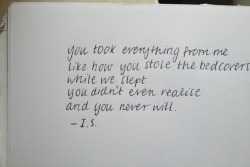 you took everything from me
like how you stole the bedcovers
while we slept
you didn't even realise
and you never will.
– I.S.